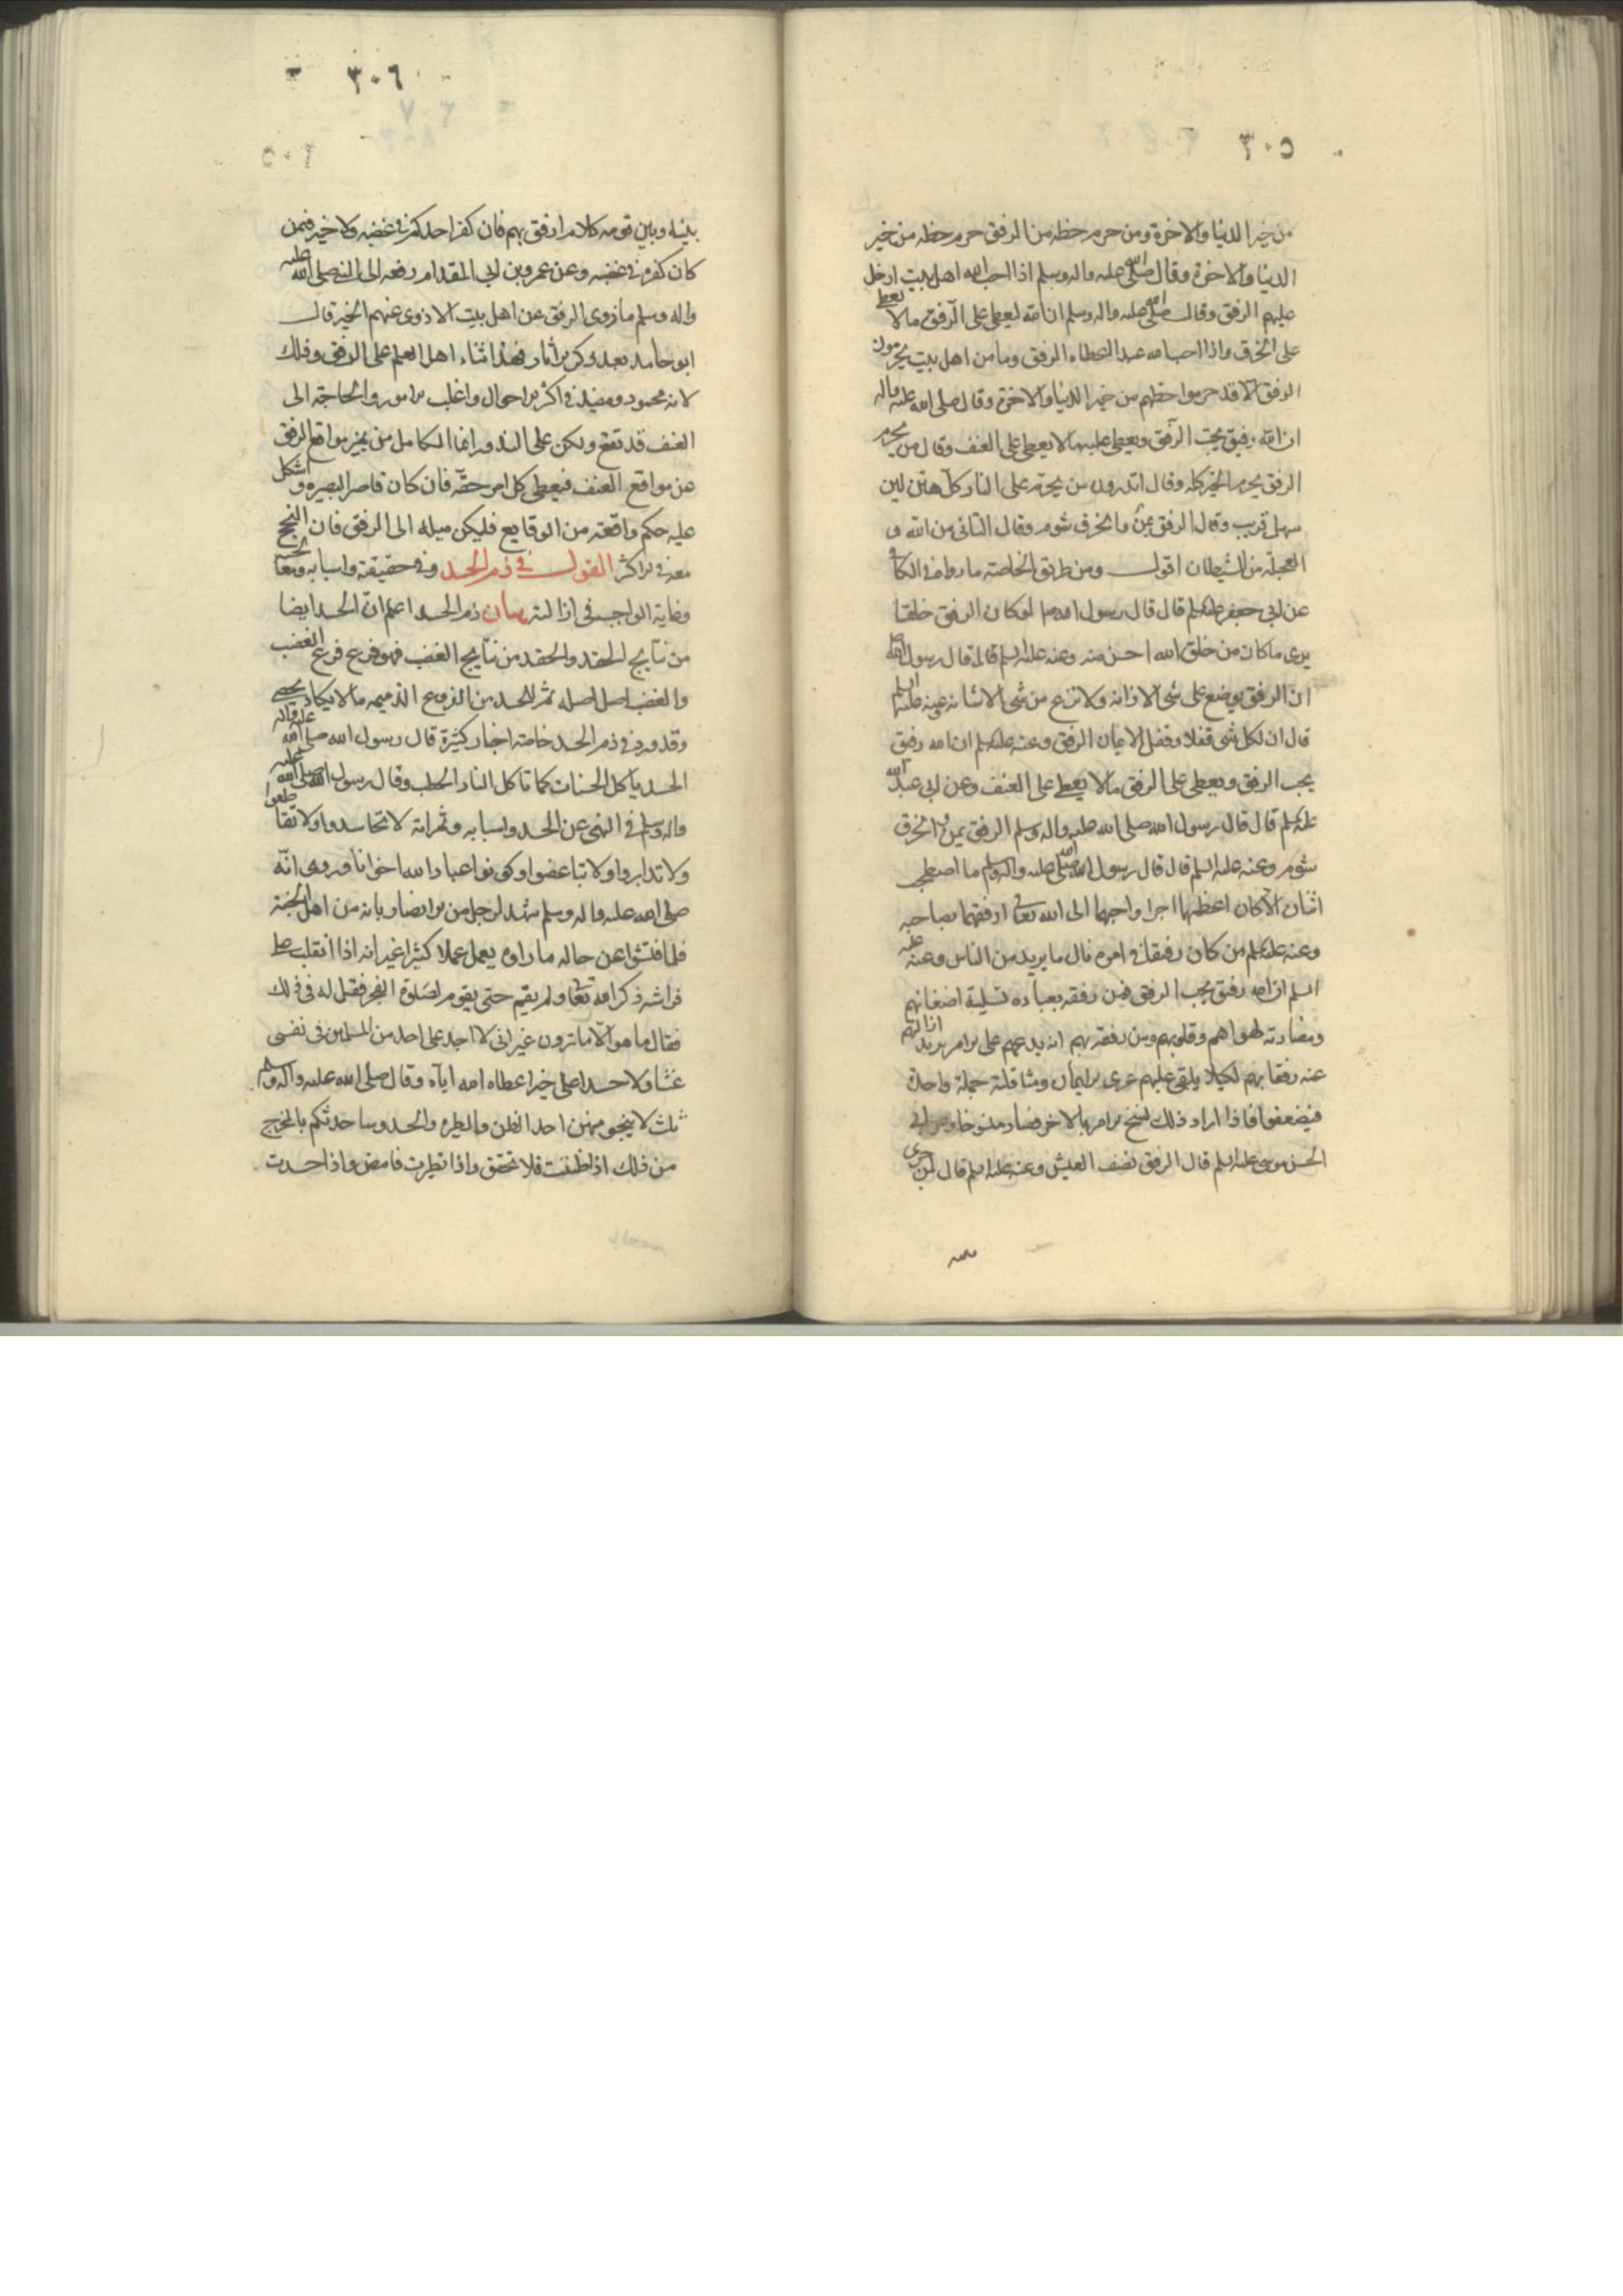 ٣٠٥
من خير الدنيا والاخرة ومن حرم حظه من الرفق حرم حظه من خير
الدنيا والاخرة وقال صلى الله عليه واله وسلم اذا احب الله اهل بيت ادخل
عليهم الرفق وقال صلى الله عليه واله وسلم ان الله ليعطي على الرفق ما لا يعطي
على الخرق واذا احب الله عبدا اعطاه الرفق وما من اهل بيت يحرمون
الرفق الا قد حرموا حظهم من خير الدنيا والاخرة وقال صلى الله عليه واله
ان الله رفيق يحب الرفق ويعطي عليه ما لا يعطي على العنف وقال من يحرم
الرفق يحرم الخير كله وقال اتدرون من يحرم على النار كل هين لين
سهل قريب وقال الرفق يمن والخرق شوم وقال التانى من الله و
العجلة من الشيطان اقول ومن طريق الخاصة ما رواه في الكافي
عن ابي جعفر عليه السلم قال قال رسول الله ص لو كان الرفق خلقا
يرى ما كان من خلق الله احسن منه وعنه عليه السلم قال قال رسول الله ص
ان الرفق يوضع على شى الا زانه ولا نزع من شى الا شانه وعنه عليه السلم
قال ان لكل شى قفلا وقفل الايمان الرفق وعنه عليه السلم ان الله رفيق
يحب الرفق ويعطي على الرفق ما لا يعطي على العنف وعن ابي عبد الله
عليه السلم قال قال رسول الله صلى الله عليه واله وسلم الرفق يمن والخرق
شوم وعنه عليه السلم قال قال رسول الله صلى الله عليه واله وسلم ما اصطحب
اثنان الا كان اعظمهما اجرا واحبهما الى الله تعالى ارفقهما بصاحبه
وعنه عليه السلم من كان رفيقا في امره نال ما يريد من الناس وعنه عليه
السلم ان الله رفيق يحب الرفق فمن رفقه بعباده تسليته اضغانهم
ومضادته لهواهم وقلوبهم ومن رفقه بهم انه يدعهم على الامر يريد ازالتهم
عنه رفقا بهم لكيلا يلقى عليهم عرى الايمان ومثاقلته جملة واحدة
فيضعفوا فاذا اراد ذلك نسخ الامر بالاخر فصار منسوخا وعن ابي
الحسن موسى عليه السلم قال الرفق نصف العيش وعنه عليه السلم قال لمن جرى
٣٠٦
بينه وبين قومه كلام ارفق بهم فان كفر احدكم في غضبه ولا خير فيمن
كان كفره في غضبه وعن عمرو بن ابي المقدام رفعه الى النبي صلى الله عليه
واله وسلم ما زوى الرفق عن اهل بيت الا زوى عنهم الخير قال
ابو حامد بعد ذكر الاثار فهذا ثناء اهل العلم على الرفق وذلك
لانه محمود ومفيد في اكثر الاحوال واغلب الامور والحاجة الى
العنف قد تقع ولكن على الندور انما الكامل من يميز مواقع الرفق
عن مواقع العنف فيعطي كل امر حقه فان كان قاصر البصيرة و اشكل
عليه حكم واقعة من الوقايع فليكن ميله الى الرفق فان النجح
معه في الاكثر القول في ذم الحسد وفي حقيقته واسبابه ومعالجته
وغاية الواجب في ازالته بيان ذم الحسد اعلم ان الحسد ايضا
من نتايج الحقد والحقد من نتايج الغضب فهو فرع فرع الغضب
والغضب اصل اصله ثم للحسد من الفروع الذميمه ما لا يكاد يحصى
وقد ورد في ذم الحسد خاصة اخبار كثيرة قال رسول الله صلى الله عليه واله
الحسد ياكل الحسنات كما تاكل النار الحطب وقال رسول الله صلى الله عليه
واله وسلم في النهى عن الحسد واسبابه وثمراته لا تحاسدوا ولا تقاطعوا
ولا تدابروا ولا تباغضوا وكونوا عباد الله اخوانا وروى انه
صلى الله عليه واله وسلم شهد لرجل من الانصار بانه من اهل الجنة
فلما فتشوا عن حاله ما راوه يعمل عملا كثيرا غير انه اذا انقلب على
فراشه ذكر الله تعالى ولم يقم حتى يقوم لصلوة الفجر فقيل له في ذلك
فقال ما هو الا ما ترون غير اني لا اجد على احد من المسلمين في نفسى
غشا ولا حسدا على خير اعطاه الله اياه وقال صلى الله عليه واله وسلم
ثلث لا ينجو منهن احد الظن والطيرة والحسد وساحدثكم بالمخرج
من ذلك اذا ظننت فلا تحقق واذا تطيرت فامض واذا حسدت